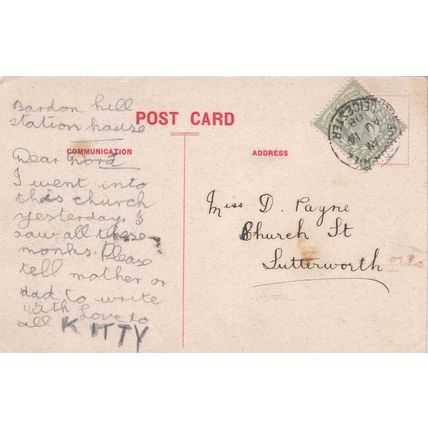 Bardon hill
station house
POST CARD
COMMUNICATION
ADDRESS
Dear
I went into
this church
yesterday. I
saw all these
monks. Please
tell mother or
dad to write
with love to
all KITTY
Miss D. Payne
Church St
Lutterworth
LEICESTER
AU
08